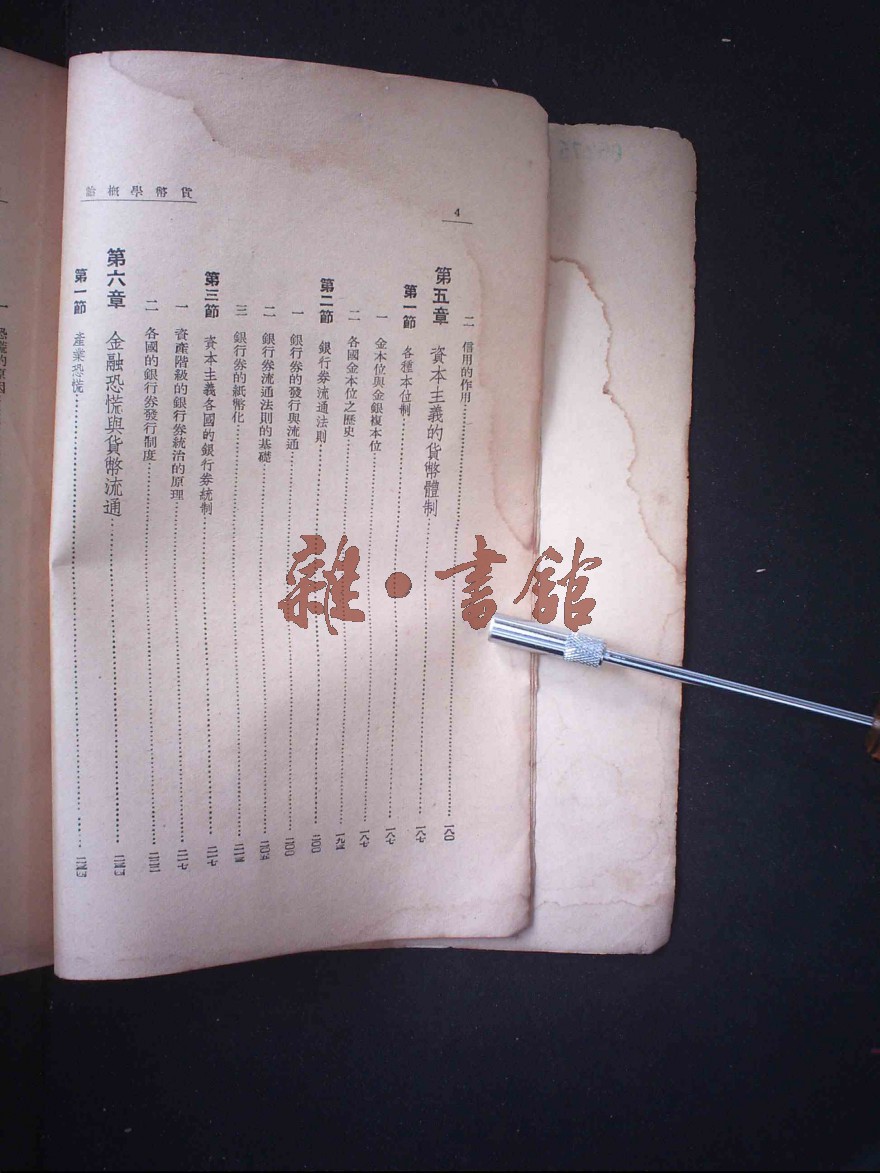 貨幣學概論
4
二 信用的作用……一八〇
第五章 資本主義的貨幣體制……一八七
第一節 各種本位制……一八七
一 金本位與金銀複本位……一八七
二 各國金本位之歷史……一九五
第二節 銀行券流通法則……二〇〇
一 銀行券的發行與流通……二〇〇
二 銀行券流通法則的基礎……二〇五
三 銀行券的紙幣化……
第三節 資本主義各國的銀行券統制……二一七
一 資產階級的銀行券統治的原理……二一七
二 各國的銀行券發行制度……
第六章 金融恐慌與貨幣流通……
第一節 產業恐慌……
一 恐慌的原因
雜·書館